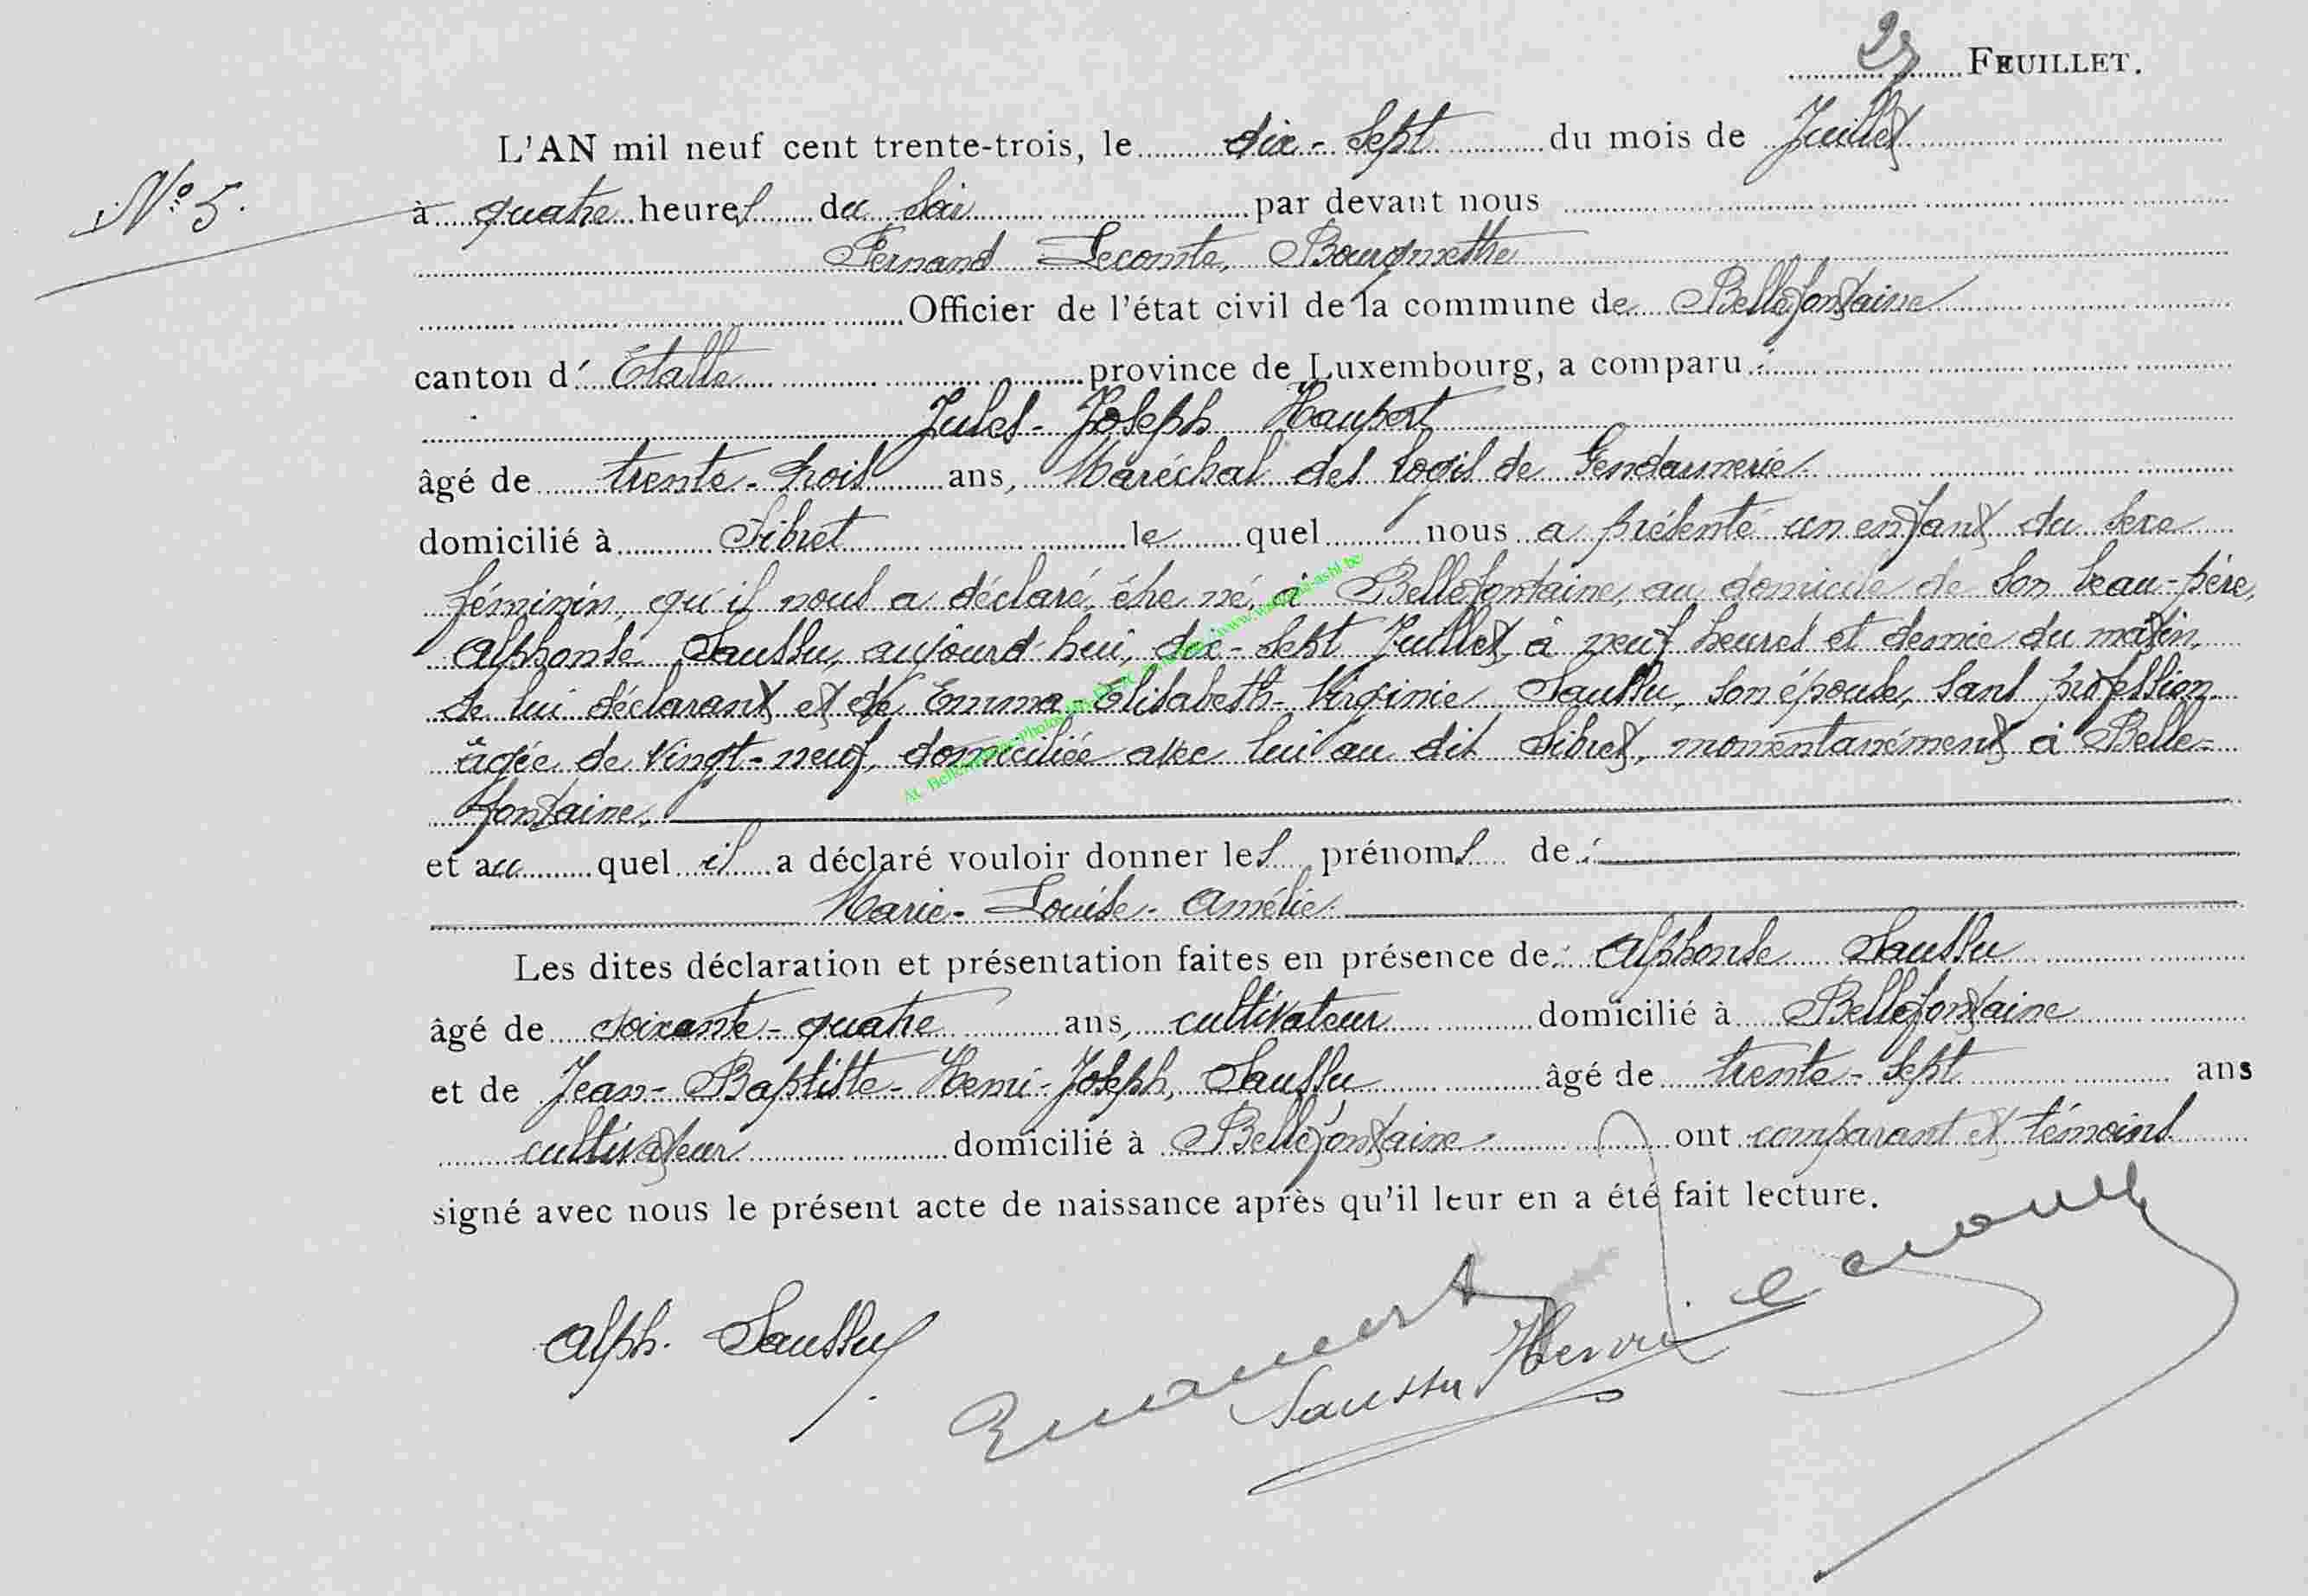 FEUILLET.
L'AN mil neuf cent trente-trois, le dix-sept du mois de Juillet
N° 5.
à quatre heures du soir par devant nous
Fernand Lecomte, Bourgmestre
Officier de l'état civil de la commune de Bellefontaine
canton d'Etalle province de Luxembourg, a comparu :
Jules-Joseph Haupert
âgé de trente-trois ans, Maréchal des logis de Gendarmerie
domicilié à Sibret le quel nous a présenté un enfant du sexe
féminin, qu'il nous a déclaré être né, à Bellefontaine, au domicile de son beau-père,
Alphonse Saussu, aujourd'hui, dix-sept Juillet, à neuf heures et demie du matin,
de lui déclarant et de Emma-Elisabeth-Virginie Saussu, son épouse, sans profession
âgée de vingt-neuf, domiciliée avec lui au dit Sibret, momentanément à Belle-
fontaine,
et au quel il a déclaré vouloir donner les prénoms de :
Marie-Louise-Amélie.
Les dites déclaration et présentation faites en présence de : Alphonse Saussu
âgé de soixante-quatre ans, cultivateur domicilié à Bellefontaine
et de Jean-Baptiste-Henri-Joseph, Saussu âgé de trente-sept ans
cultivateur domicilié à Bellefontaine ont comparant et témoins
signé avec nous le présent acte de naissance après qu'il leur en a été fait lecture.
Alph. Saussu
Saussu Henri